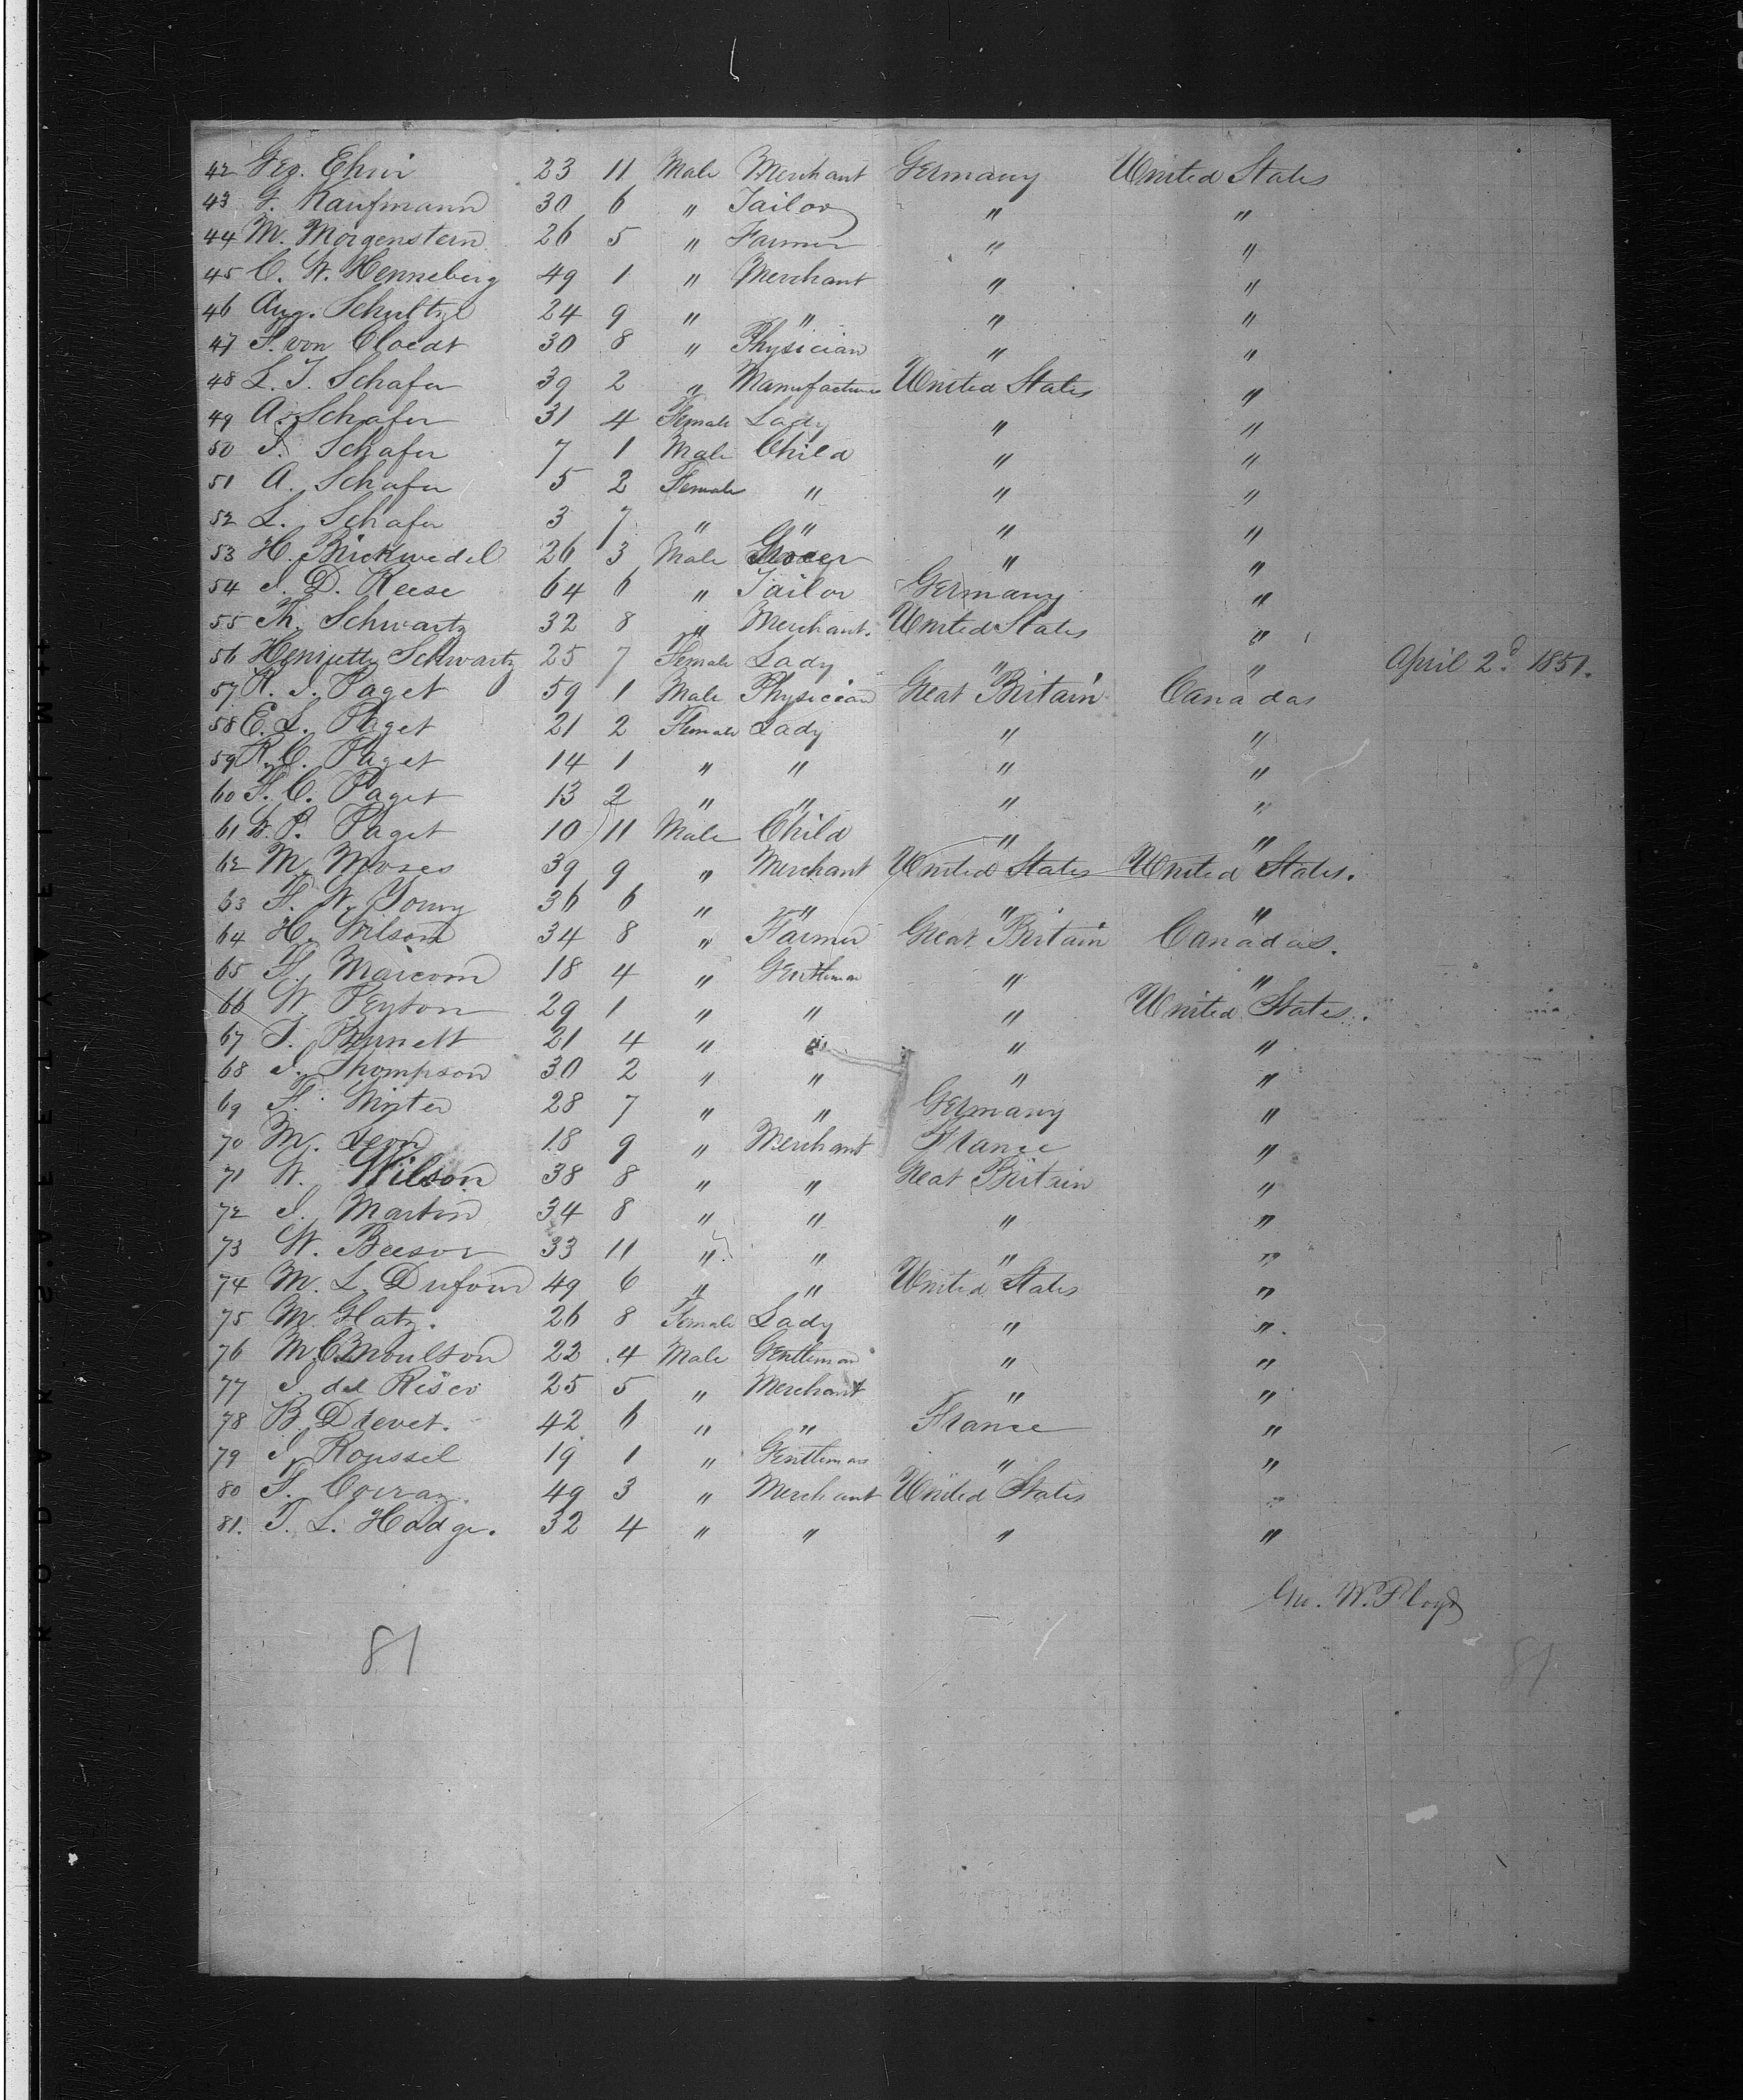 42 Geo. Ehni 23 11 Male Merchant Germany United States
43 G. Kaufmann 30 6 " Tailor " "
44 M. Morgenstern 26 5 " Farmer " "
45 C. W. Henneberg 49 1 " Merchant " "
46 Aug. Schultze 24 9 " " " "
47 F. von Cloedt 30 8 " Physician " "
48 L. T. Schafer 39 2 " Manufacturer United States "
49 A. Schafer 31 4 Female Lady " "
50 T. Schafer 7 1 Male Child " "
51 A. Schafer 5 2 Female " " "
52 L. Schafer 3 7 " " " "
53 H. 26 3 Male Grocer " "
54 J. D. Reese 64 6 " Tailor Germany "
55 M. Schwartz 32 8 " Merchant. United States "
56 Henriette Schwartz 25 7 Female Lady " " April 2d 1851.
57 R. J. Paget 59 1 Male Physician Great Britain Canadas
58 E. L. Paget 21 2 Female Lady " "
59 R. C. Paget 14 1 " " " "
60 F. C. Paget 13 2 " " " "
61 W. P. Paget 10 11 Male Child " "
62 M. Moses 39 9 " Merchant United States United States.
63 F. W. Young 36 6 " " " "
64 H. Wilson 34 8 " Farmer Great Britain Canadas.
65 F. Marcom 18 4 " Gentleman " "
66 W. Peyton 29 1 " " " United States.
67 T. Bennett 21 4 " " " "
68 J. Thompson 30 2 " " " "
69 F. 28 7 " " Germany "
70 M. Leon 18 9 " Merchant France "
71 W. Wilson 38 8 " " Great Britain "
72 J. Martin 34 8 " " " "
73 W. Beesor 33 11 " " " "
74 M. L. Dufour 49 6 " " United States "
75 M. Glatz. 26 8 Female Lady " "
76 M. C. Moulton 22 4 Male Gentleman " "
77 J. del Risco 25 5 " Merchant " "
78 B. Drevet. 42 6 " " France "
79 J. Roussel 19 1 " Gentleman " "
80 F. 49 3 " Merchant United States "
81. T. L. Hodge. 32 4 " " " "
Geo. W. Floyd
81
81